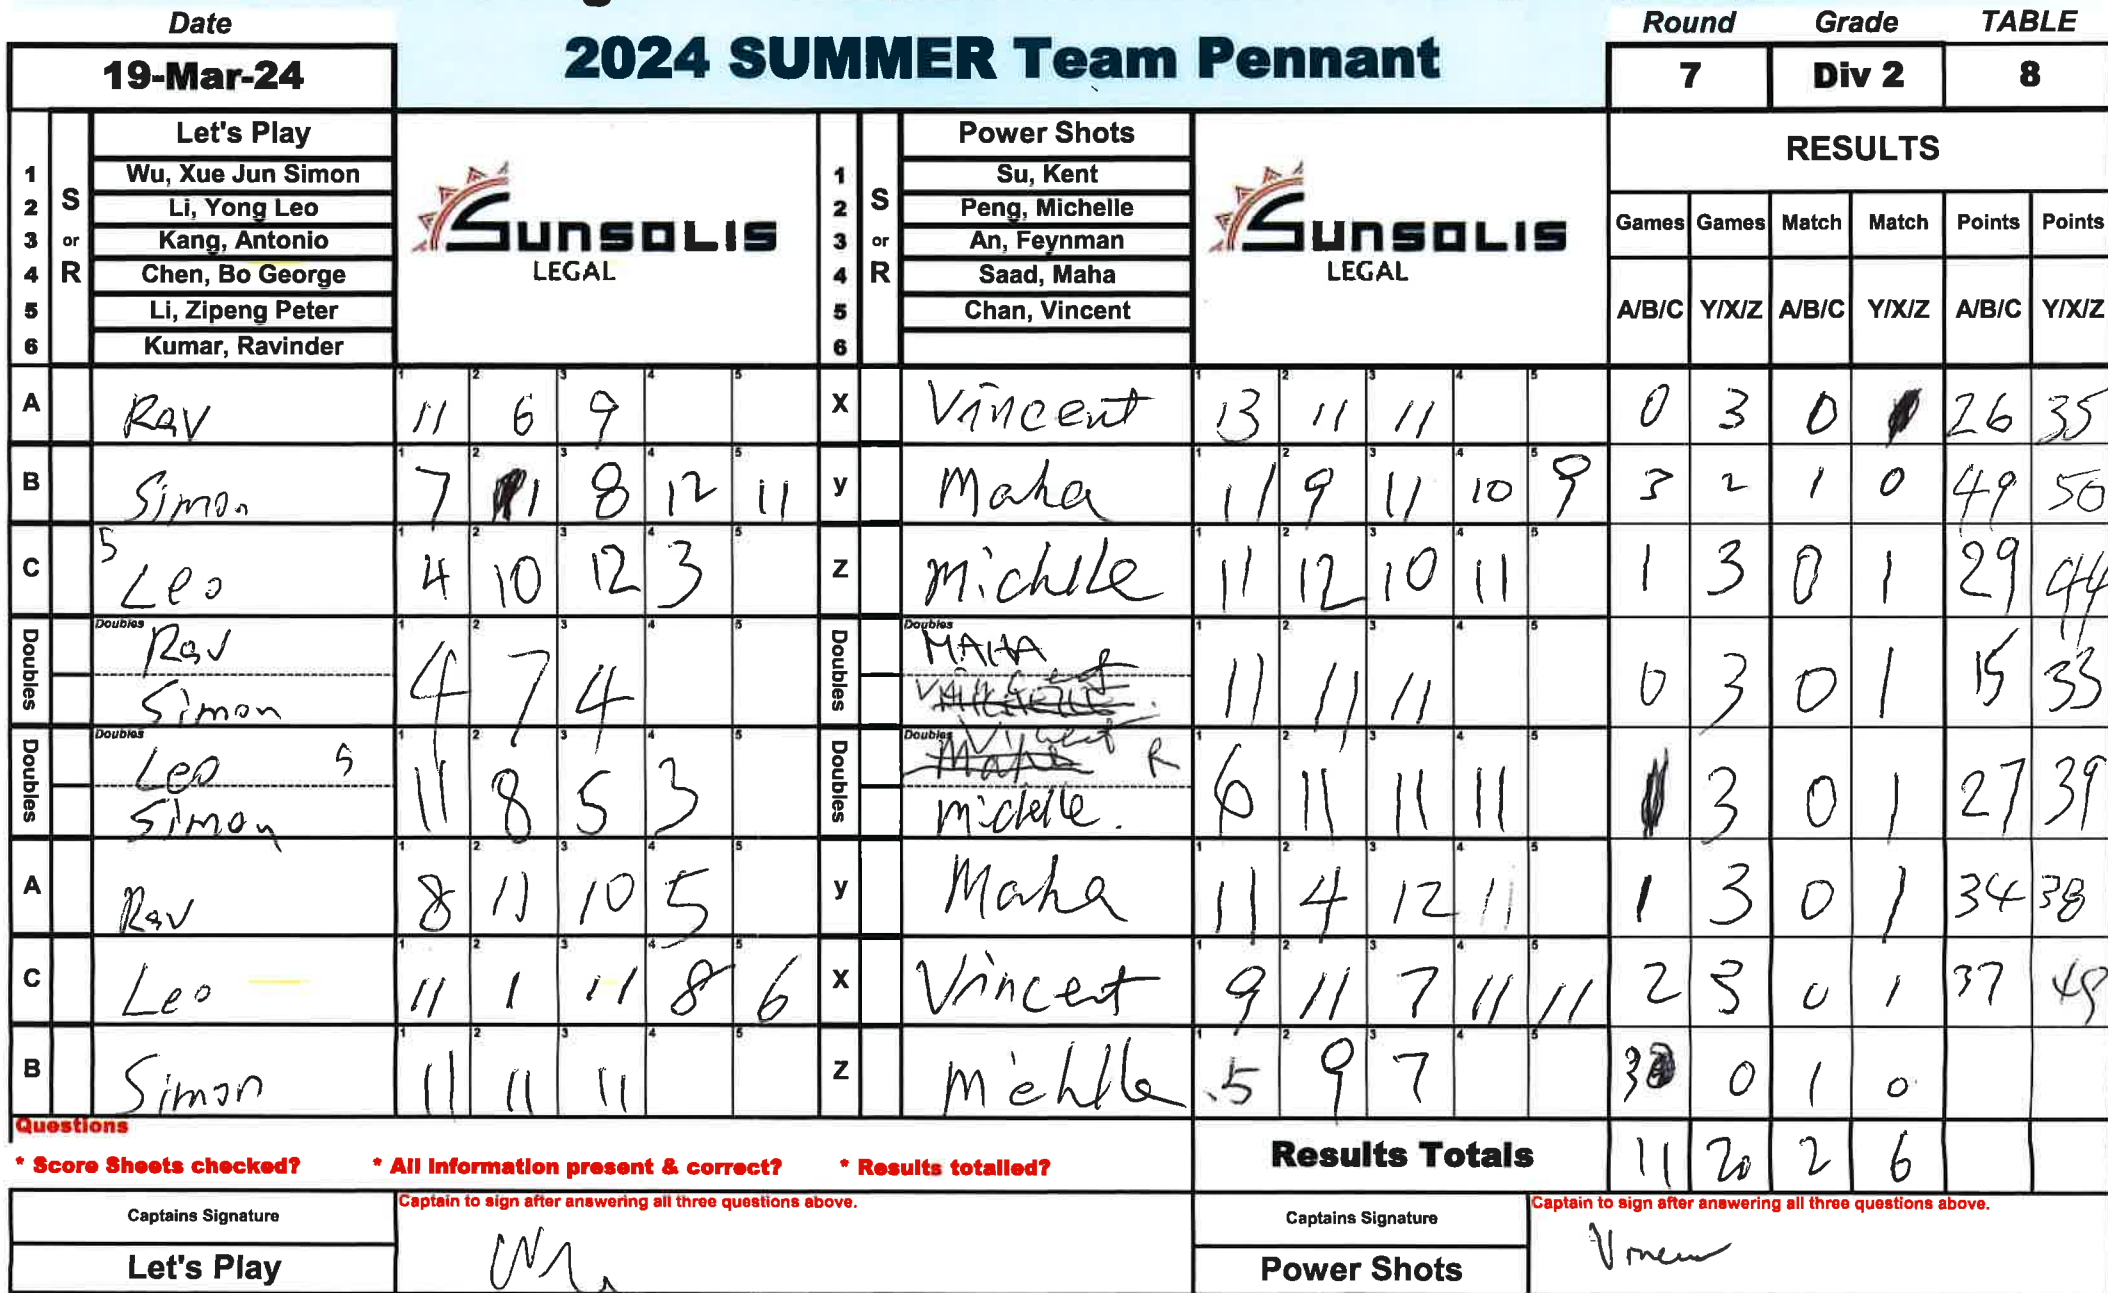 Date
19-Mar-24
2024 SUMMER Team Pennant
Round Grade TABLE
7 Div 2 8
S or R
Let's Play
1 Wu, Xue Jun Simon
2 Li, Yong Leo
3 Kang, Antonio
4 Chen, Bo George
5 Li, Zipeng Peter
6 Kumar, Ravinder
SUNSOLIS
LEGAL
S or R
Power Shots
1 Su, Kent
2 Peng, Michelle
3 An, Feynman
4 Saad, Maha
5 Chan, Vincent
6
SUNSOLIS
LEGAL
RESULTS
Games Games Match Match Points Points
A/B/C Y/X/Z A/B/C Y/X/Z A/B/C Y/X/Z
A Rav 11 6 9 X Vincent 13 11 11 0 3 0 26 35
B Simon 7 11 8 12 11 y Maha 11 9 11 10 9 3 2 1 0 49 50
C 5 Leo 4 10 12 3 Z Michlle 11 12 10 11 1 3 0 1 29 44
Doubles Rav Simon 4 7 4 Doubles MAHA Vincent 11 11 11 0 3 0 1 15 33
Doubles Leo 5 Simon 11 8 5 3 Doubles Vincent R michelle. 6 11 11 11 1 3 0 1 27 39
A Rav 8 11 10 5 y Maha 11 4 12 11 1 3 0 1 34 38
C Leo 11 1 11 8 6 X Vincent 9 11 7 11 11 2 3 0 1 37 49
B Simon 11 11 11 Z Mehlle 5 9 7 3 0 1 0
Questions
* Score Sheets checked? * All Information present & correct? * Results totalled?
Results Totals 11 20 2 6
Captains Signature
Captain to sign after answering all three questions above.
Let's Play
Captains Signature
Captain to sign after answering all three questions above.
Power Shots